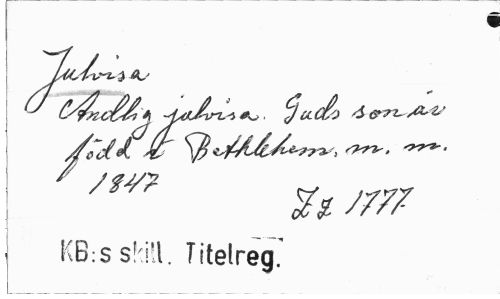 Julvisa
Andlig julvisa. Guds son är
född i Bethlehem. m. m.
1847
Zz 1777.
KB:s skill. Titelreg.